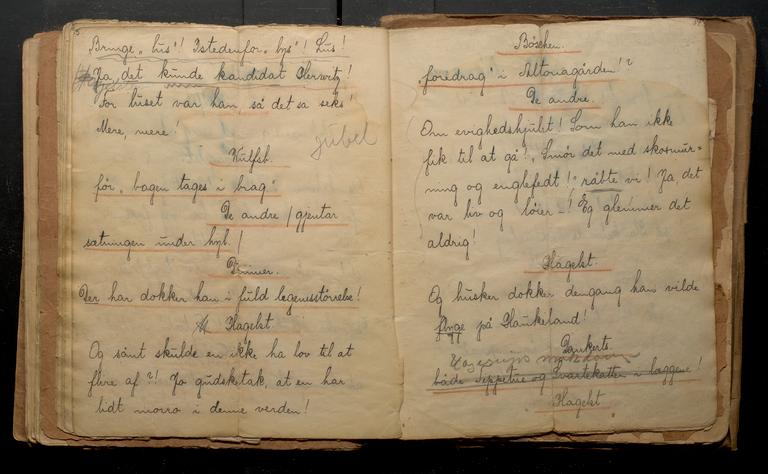 Bringe „lus"! Istedenfor „lys"! Lus!
Ja, det kunde kandidat
for huset var han, så det sa seks!
Mere, mere!
Jubel
Wulfsb.
før „bogen tages i brag"
De andre / gjentar
satningen under hyl. /
Der har dokker han i fuld legemsstørrelse!
Plagebst
Og sånt skulde en ikke ha lov til at
flire af?! Jo gudsketak, at en har
lidt morro i denne verden!
Bøschen.
„foredrag" i Altonagården!?
De andre.
Om evighedshjulet! Som han ikke
fik til at gå! „Smør det med
ning og englefedt!" råbte vi! Ja, det
var liv og løier –! Eg glemmer det
aldrig!
Plagebst.
Og husker dokker dengang han vilde
flyge på
både og Svartekatten i læggene!
Plagebst